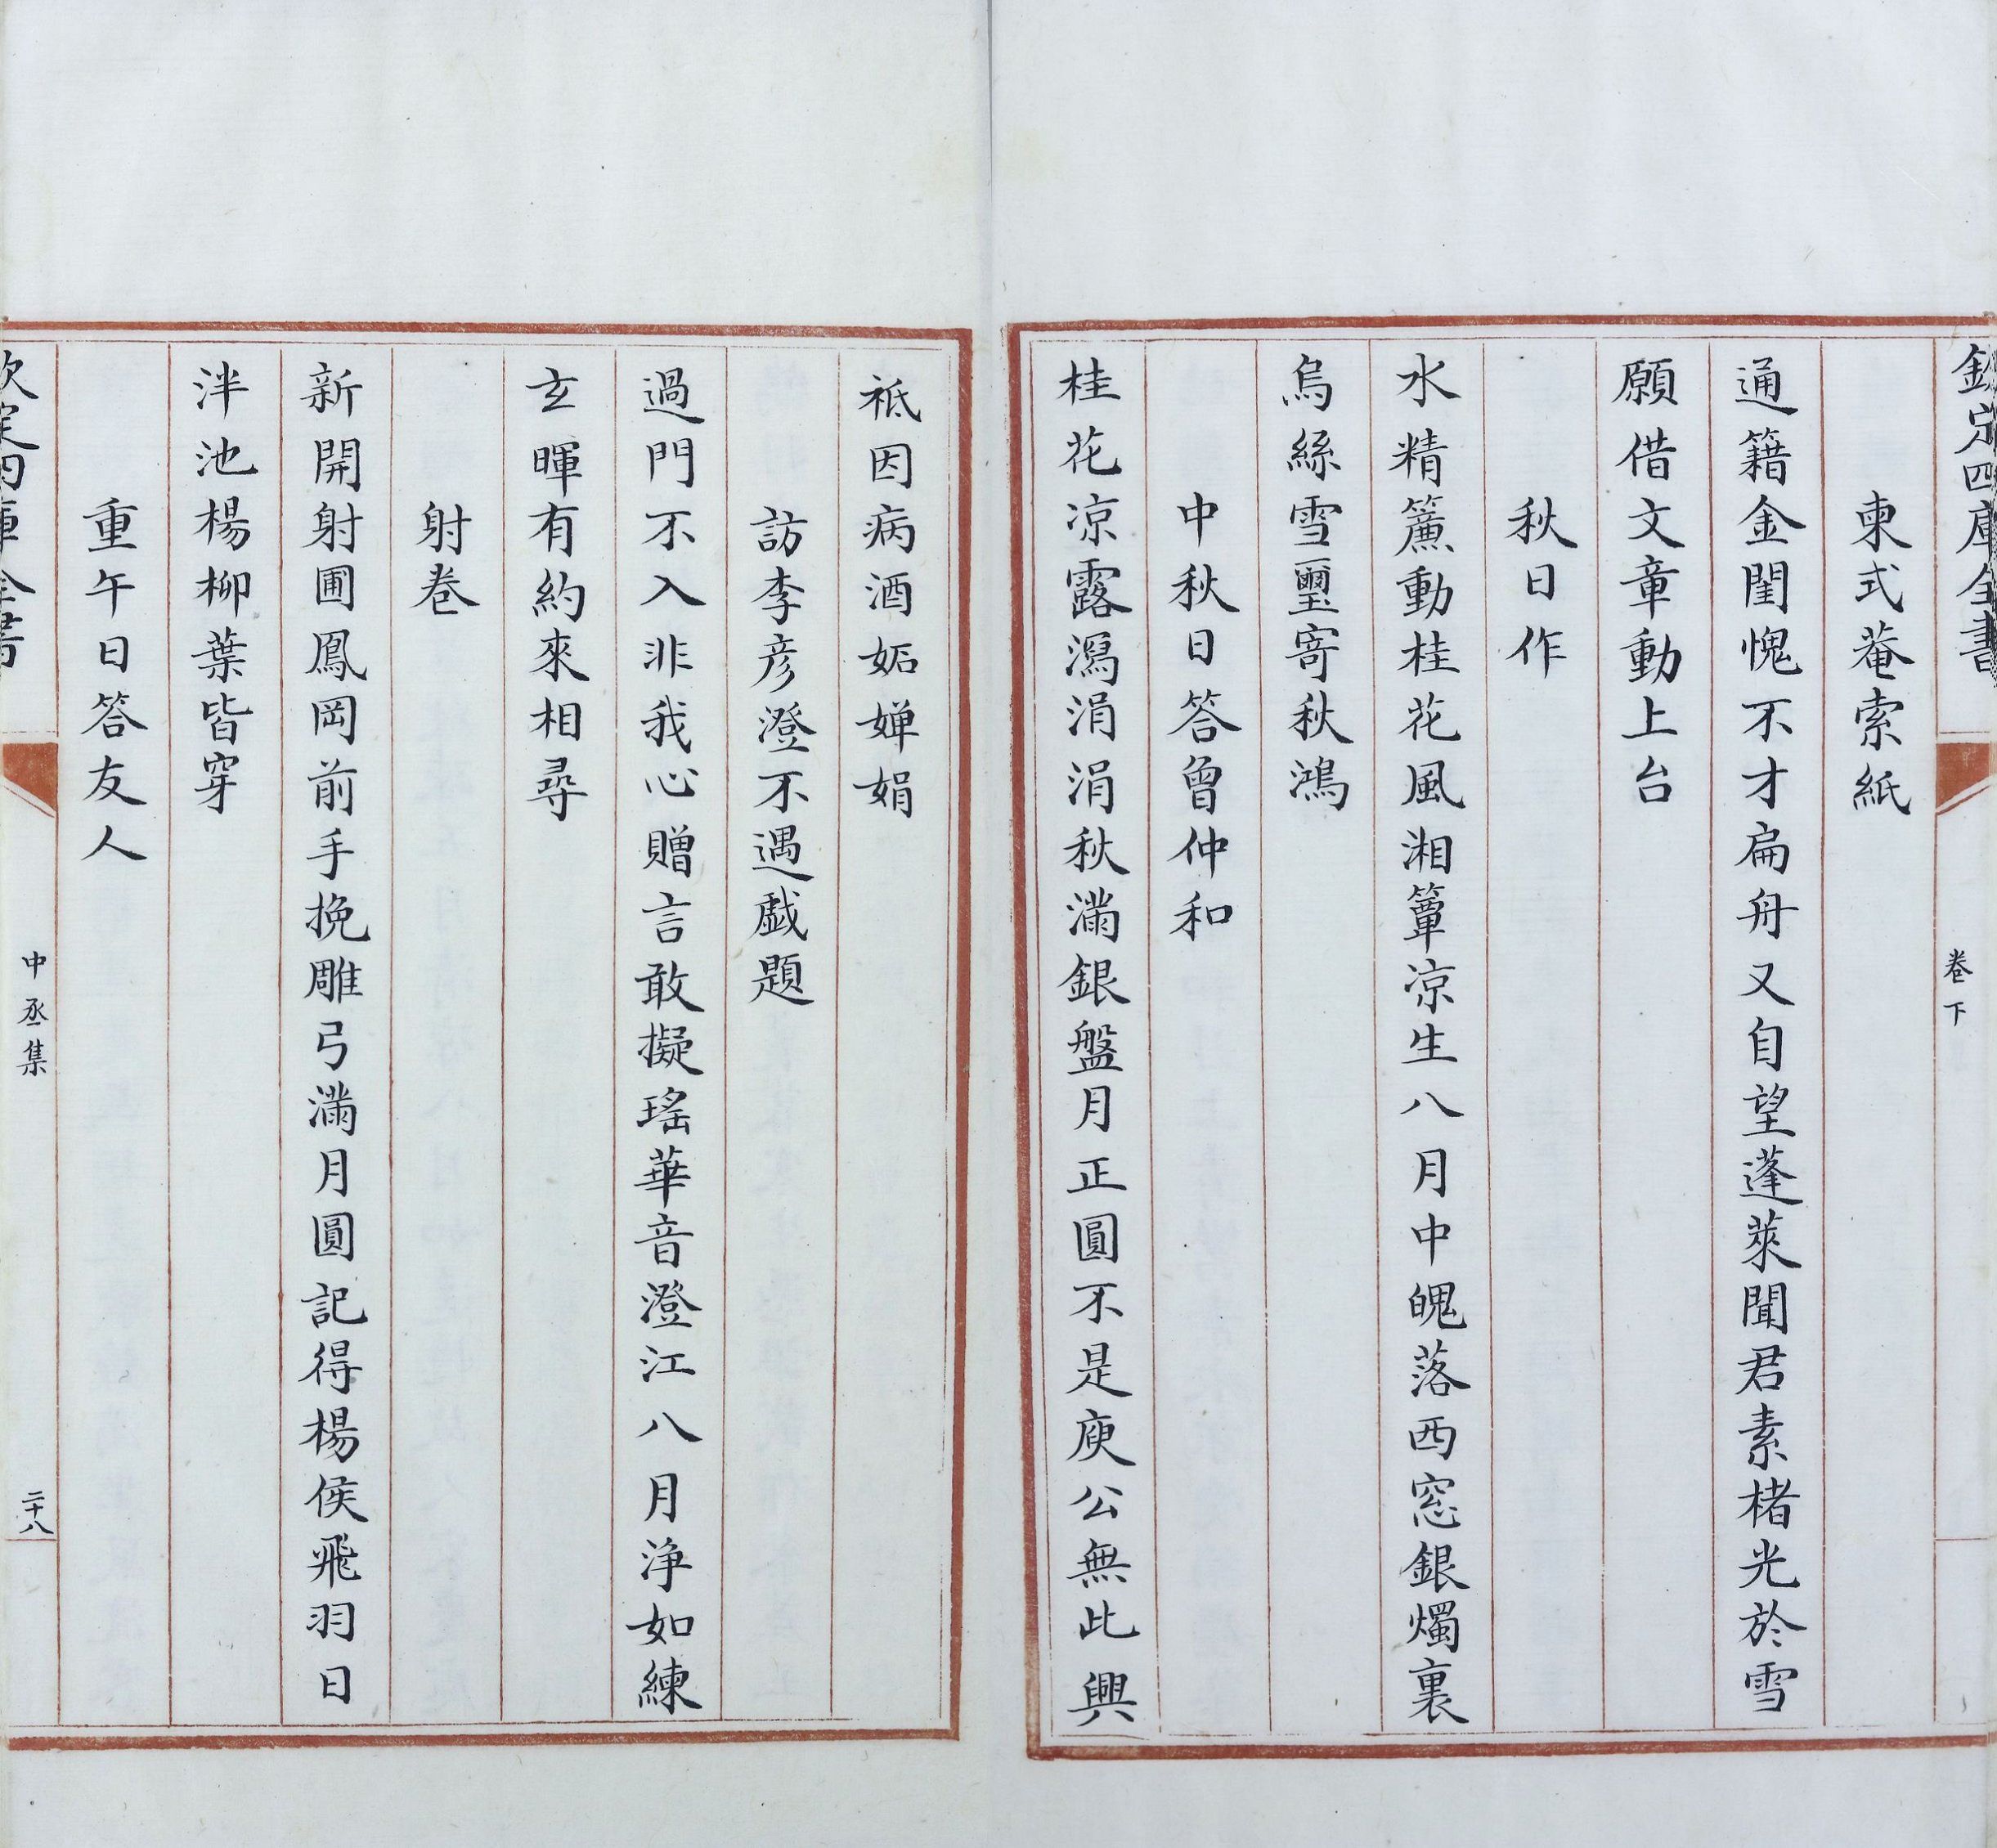 欽定四庫全書
卷下
柬式菴索紙
通籍金閨愧不才扁舟又自望蓬萊聞君素楮光於雪
願借文章動上台
秋日作
水精簾動桂花風湘簟凉生八月中魄落西窓銀燭裏
烏絲雪璽寄秋鴻
中秋日答曾仲和
桂花凉露瀉涓涓秋滿銀盤月正圓不是庾公無此興
祗因病酒妬嬋娟
訪李彦澄不遇戯題
過門不入非我心贈言敢擬瑤華音澄江八月浄如練
玄暉有約來相尋
射巻
新開射圃鳳岡前手挽雕弓滿月圓記得楊侯飛羽日
泮池楊柳葉皆穿
重午日答友人
欽定四庫全書
中丞集
二十八